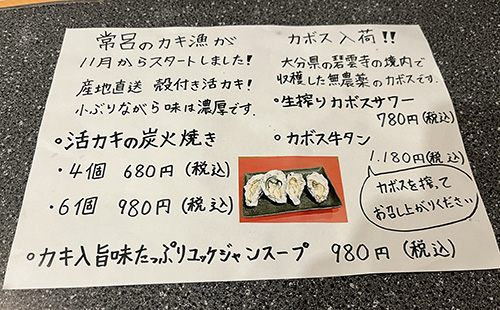 常呂のカキ漁が
11月からスタートしました!
産地直送 殻付き活カキ!
小ぶりながら味は濃厚です.
○活カキの炭火焼き
・4個 680円(税込)
・6個 980円(税込)
カボス入荷!!
大分県の碧雲寺の境内で
収穫した無農薬のカボスです.
○生搾りカボスサワー
780円(税込)
○カボス牛タン
1.180円(税込)
カボスを搾って
お召し上がりください
○カキ入旨味たっぷりユッケジャンスープ 980円(税込)